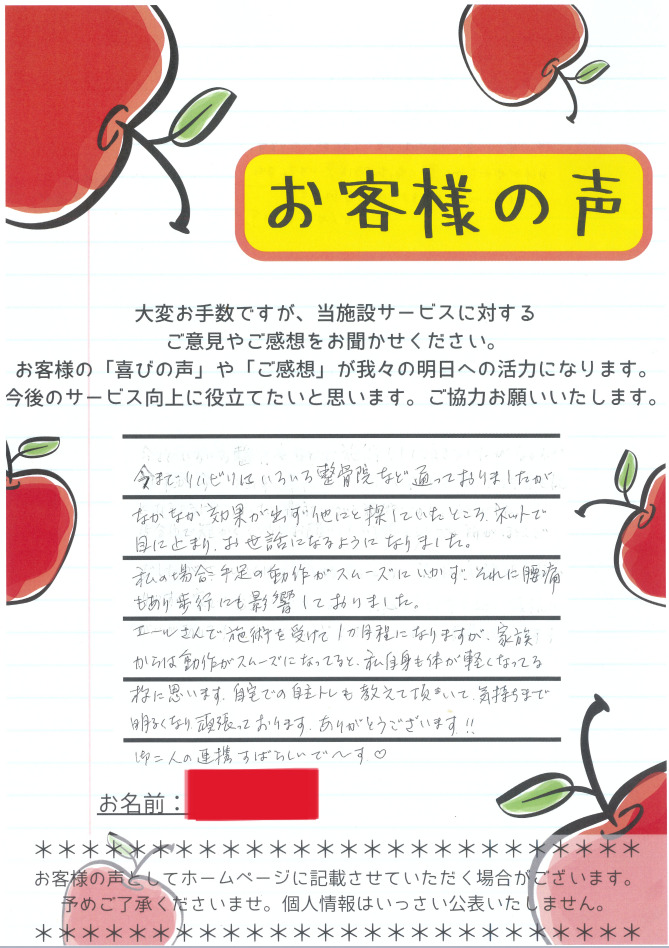 お客様の声
大変お手数ですが、当施設サービスに対する
ご意見やご感想をお聞かせください。
お客様の「喜びの声」や「ご感想」が我々の明日への活力になります。
今後のサービス向上に役立てたいと思います。ご協力お願いいたします。
今までリハビリはいろいろ整骨院など通っておりましたが
なかなか効果が出ず他にと探していたところ、ネットで
目に止まり、お世話になるようになりました。
私の場合手足の動作がスムーズにいかず、それに腰痛
もあり歩行にも影響しておりました。
エールさんで施術を受けて1か月程になりますが、家族
からは動作がスムーズになってると、私自身も体が軽くなってる
様に思います。自宅での自主トレも教えて頂きいて、気持ちまで
明るくなり頑張っております。ありがとうございます!!
御二人の連携すばらしいで〜す♡
お名前：
＊＊＊＊＊＊＊＊＊＊＊＊＊＊＊＊＊＊＊＊＊＊＊＊＊＊
お客様の声としてホームページに記載させていただく場合がございます。
予めご了承くださいませ。個人情報はいっさい公表いたしません。
＊＊＊＊＊＊＊＊＊＊＊＊＊＊＊＊＊＊＊＊＊＊＊＊＊＊